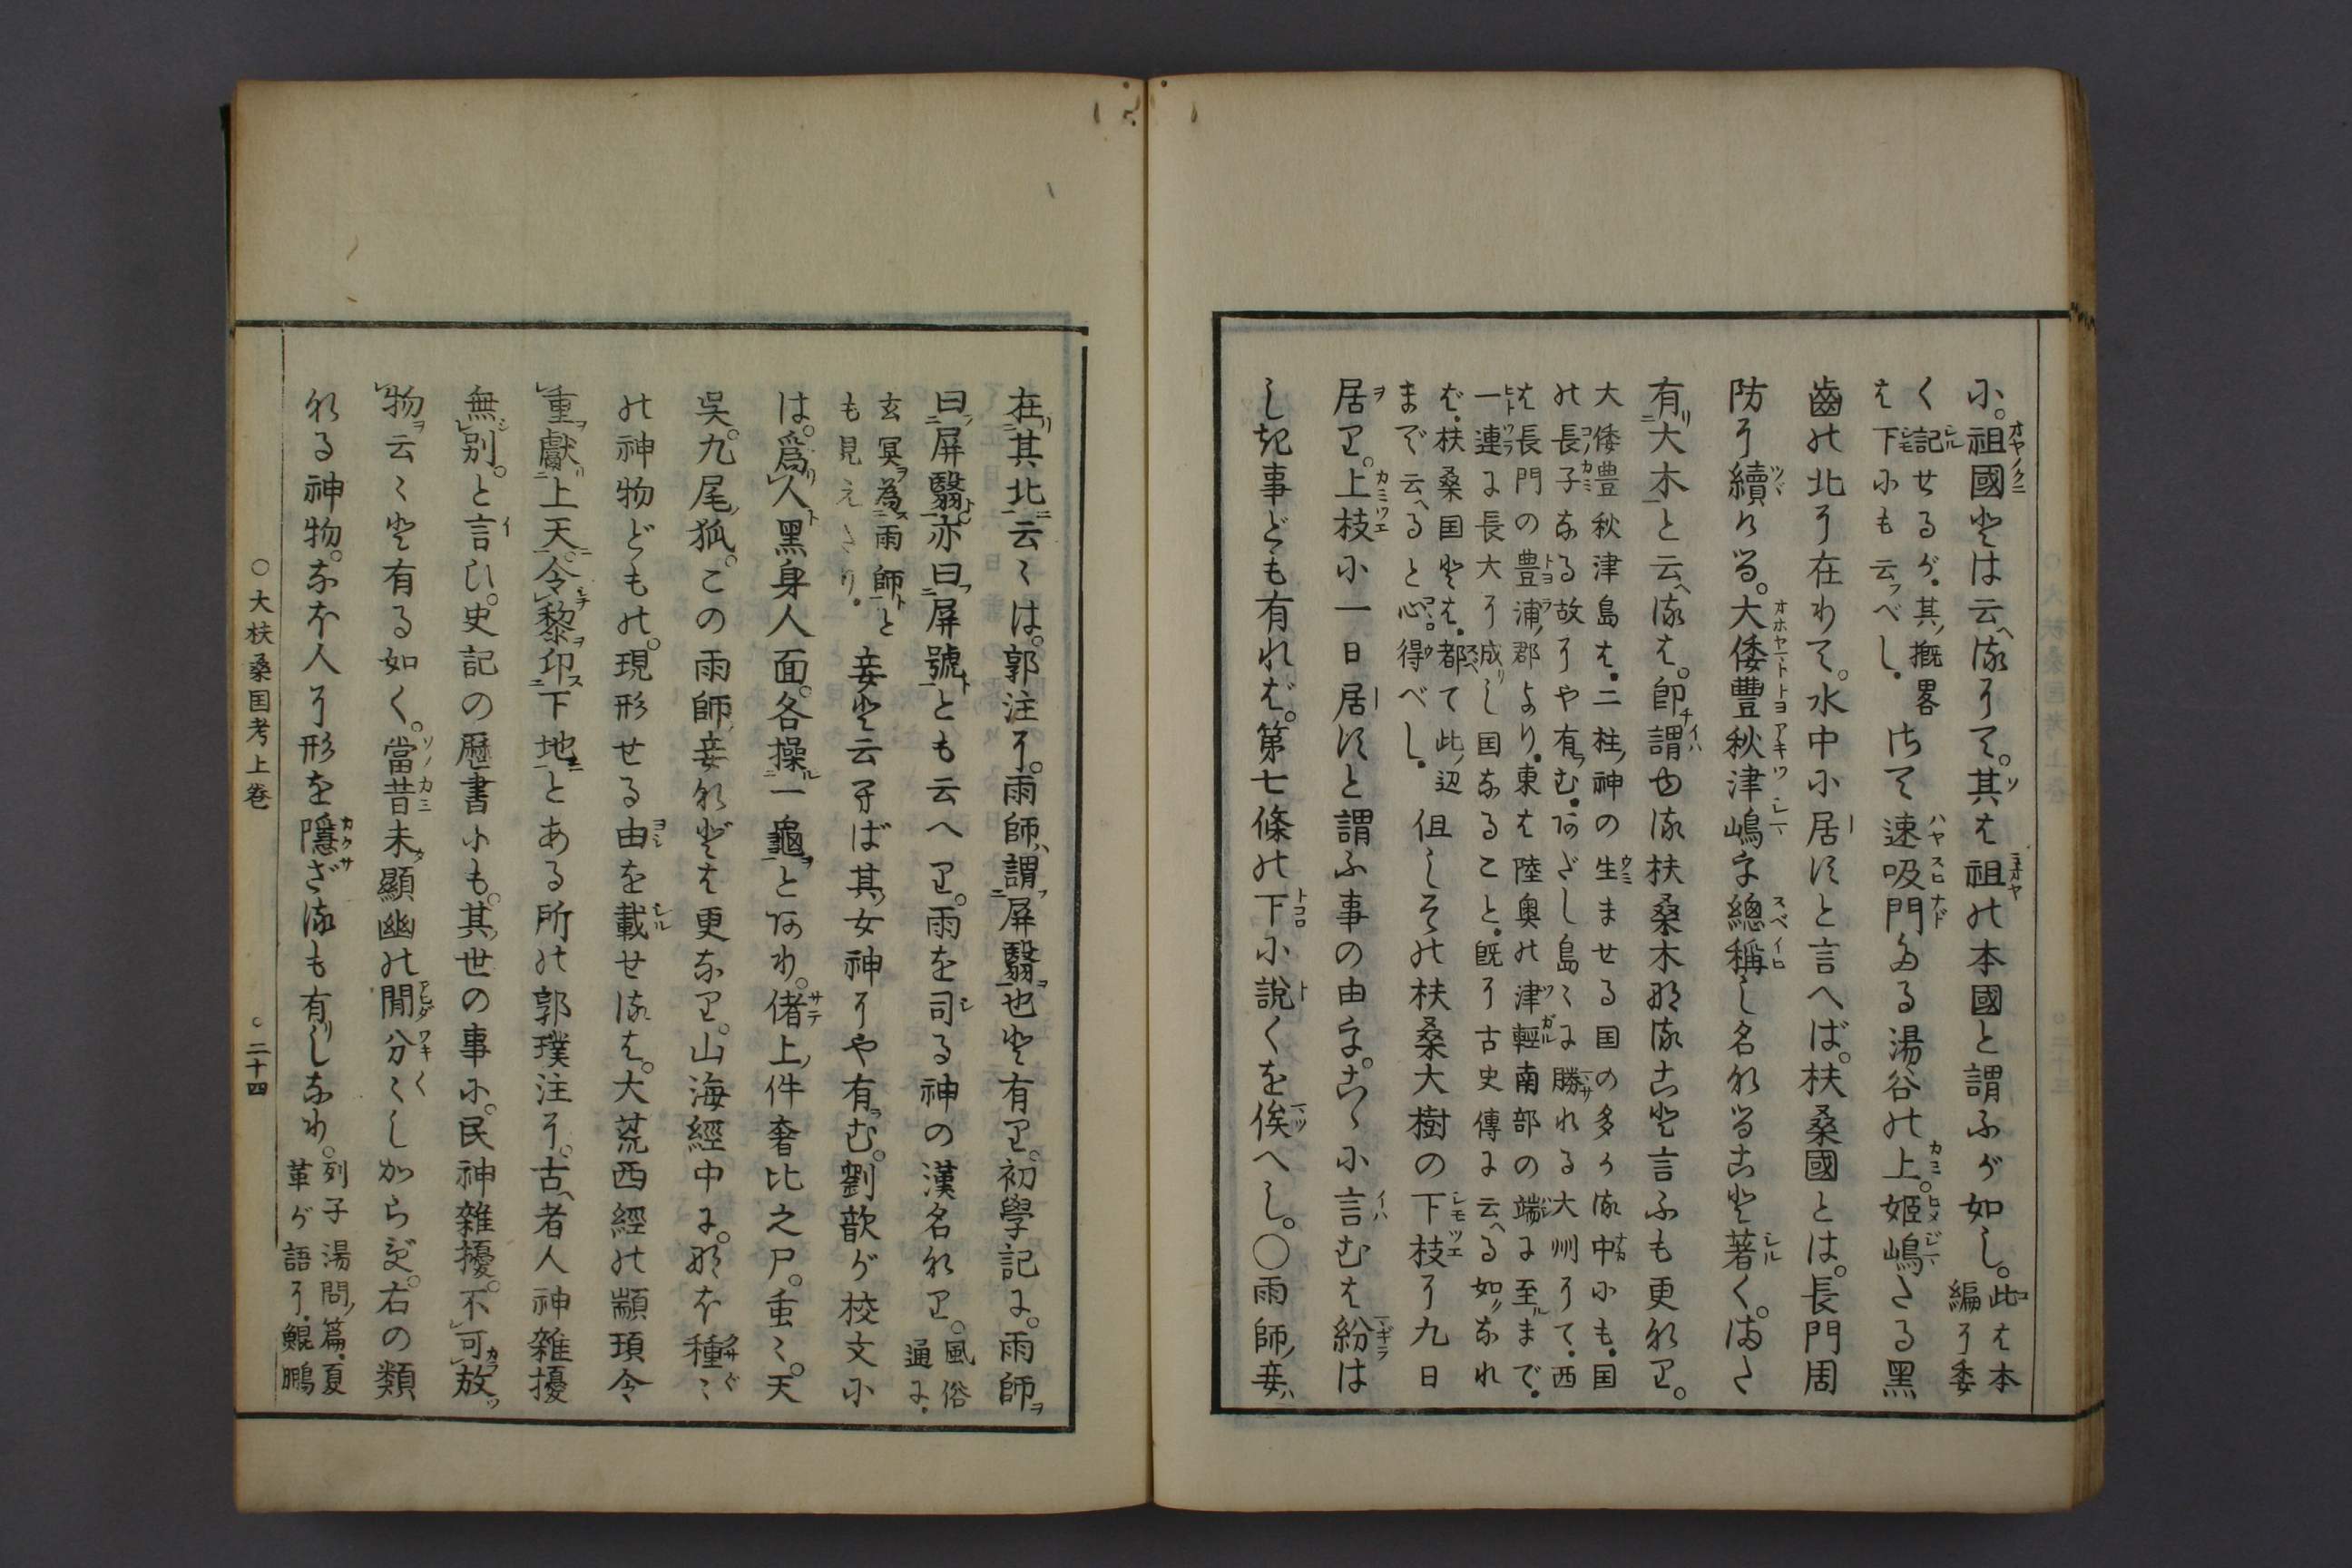 に。祖國とは云へるにて。其は祖の本國と謂ふが如し。此は本編に委
く記せるが。其ノ概畧は下にも云ふべし。さて速吸門なる湯谷の上。姫嶋なる黑
齒の北に在りて。水中に居すと言へば。扶桑國とは。長門周
防に續ける。大倭豐秋津嶋を總稱し名なること著く。また
有大木と云へるは。卽謂ゆる扶桑木なること言ふも更なり。
大倭豊秋津島は。二柱ノ神の生ませる国の多かる中にも。国
の長子なる故にや有む。あだし島々に勝れる大州にて。西
は長門の豊浦ノ郡より。東は陸奥の津輕南部の端に至るまで。
一連に長大に成りし国なること。既に古史傳に云へる如なれ
ば。扶桑国とは。都て此ノ辺
まで云へると心得べし。但しその扶桑大樹の下枝に九日
居り。上枝に一日居すと謂ふ事の由を。こゝに言むは紛は
しき事ども有れば。第七條の下に說くを俟へし。〇雨師ノ妾ハ
在其北云々は。郭注に。雨師ハ謂屏翳也と有り。初學記に。雨師ヲ
曰屏翳亦曰屏號とも云へり。雨を司る神の漢名なり。風俗通に。
玄冥為雨師と
も見えたり。妾と云へれば其ノ女神にや有む。劉歆が校文に
は。爲人黑身人面。各操一龜とあり。偖上ノ件奢比之尸。䖝々。天
吳。九尾ノ狐。この雨師ノ妾などは更なり。山海經中に。なほ種々
の神物どもの。現形せる由を載せるは。大荒西經の顓頊令
重獻上天。令黎卬下地とある所の郭璞注に。古者人神雜擾
無別。と言ひ。史記の歷書にも。其ノ世の事に。民神雜擾。不可放
物云々と有る如く。當昔未顯幽の間分々しからず。右の類
なる神物。なほ人に形を隱ざるも有しなり。列子湯問ノ篇。夏革が語に。鯤鵬
〇大扶桑国考上巻
〇二十四